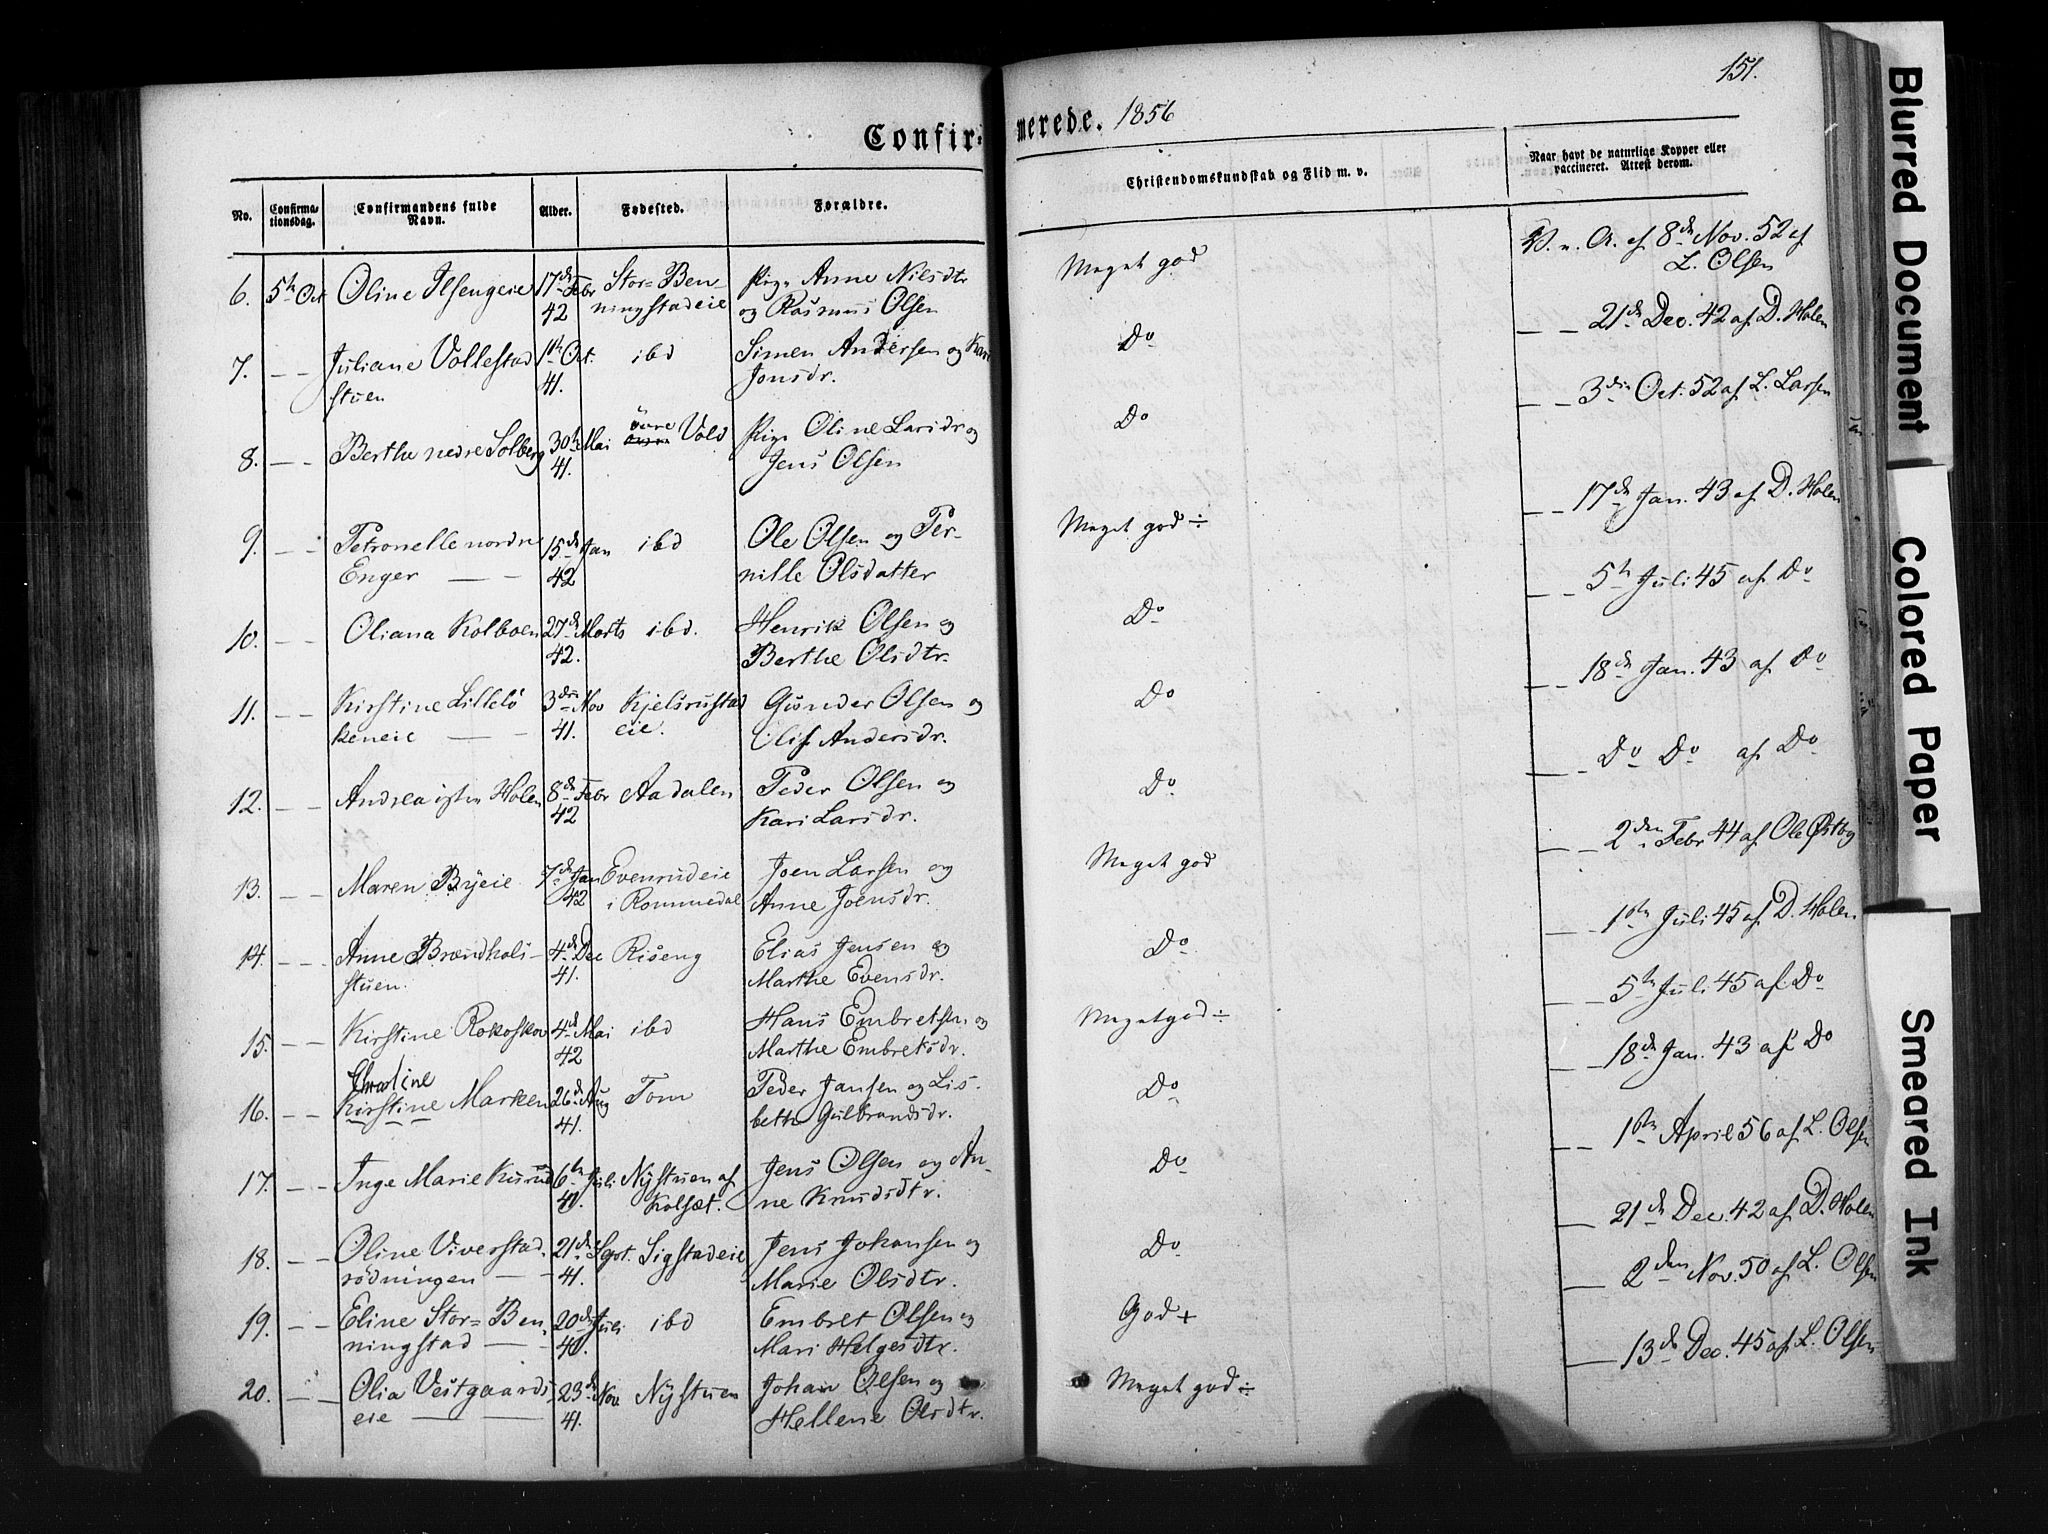 151.
Confirmerede. 1856
No.
Confirmationsdag.
Confirmandens fulde Navn.
Alder.
Fødested.
Forældre.
Christendomskundskab og Flid m. v.
Naar havt de naturlige Kopper eller vaccineret. Attest derom.
6. 5te Oct Oline Ilsengeie 17de Febr Stor-Ben- Pige Anne Nilsdtr Meget god V. n. A. af 8de Nov. 52 af
42 ningstadeie og Rasmus Olsen L. Olsen
7. — — Juliane Vollestad 1ste Oct. ibd Simen Andersen og Kari Do — — 21de Dec. 42 af D. Holen
stuen 41. Jonsdr.
8. — — Berthe nedre Solberg 30te Mai övre Vold Pige Oline Larsdr og Do — — 3die Oct. 52 af L. Larsen
41. Jens Olsen
9. — — Petronelle nordre 15de Jan ibd Ole Olsen og Per- Meget god ÷ — — 17de Jan. 43 af D. Holen
Enger — — 42 nille Olsdatter
10. — — Oliana Kolboen 27de Marts ibd. Henrik Olsen og Do — — 5te Juli 45 af Do
42. Berthe Olsdtr.
11. — — Kirstine Lillelö 3die Nov Kjelsrustad Gunder Olsen og Do — — 18de Jan. 43 af Do
keneie — — 41. eie. Andersdr.
12. — — Andrea Holen 8de Febr Aadalen Peder Olsen og Do — — Do Do af Do
42 Kari Larsdr.
13. — — Maren Byeie 7de Jan Evenrudeie Joen Larsen og Meget god — — 2den Febr 44 af Ole Østby
42 i Rommedal Anne Joensdr.
14. — — Anne Brændhols- 4de Dec Riseng Elias Jensen og Do — — 1ste Juli 45 af D. Holen
stuen. 41. Marthe Evensdr.
15. — — Kirstine Rokoskov 4de Mai ibd Hans Embretsen og Meget god ÷ — — 5te Juli 45 af Do
42 Marthe Embretsdr.
Christine
16. — — Kirstine Marken 26de Aug Tom Peder Jansen og Lis- Do — — 18de Jan. 43 af Do
41. beth Gulbrandsdr.
17. — — Inge Marie Kurud 6te Juli Nystuen af Jens Olsen og An- Do — — 1ste April 56 af L. Olsen
Kolsæt. ne Knudsdtr.
18. — — Oline Viverstad 21de Sept. Sigstadeie Jens Johansen og Do — 21de Dec. 42 af D. Holen
rödningen — — 41. Marie Olsdtr.
19. — — Eline Stor-Ben- 20de Juli ibd Embret Olsen og God + — 2den Nov. 50 af L. Olsen
ningstad — — Mari Helgesdtr.
20. — — Olia Vestgaards- 23de Nov Nystuen Johan Olsen og Meget god ÷ — 13de Dec. 45 af L. Olsen
eie — — 41. Hellene Olsdtr.
Blurred Document
Colored Paper
Smeared Ink